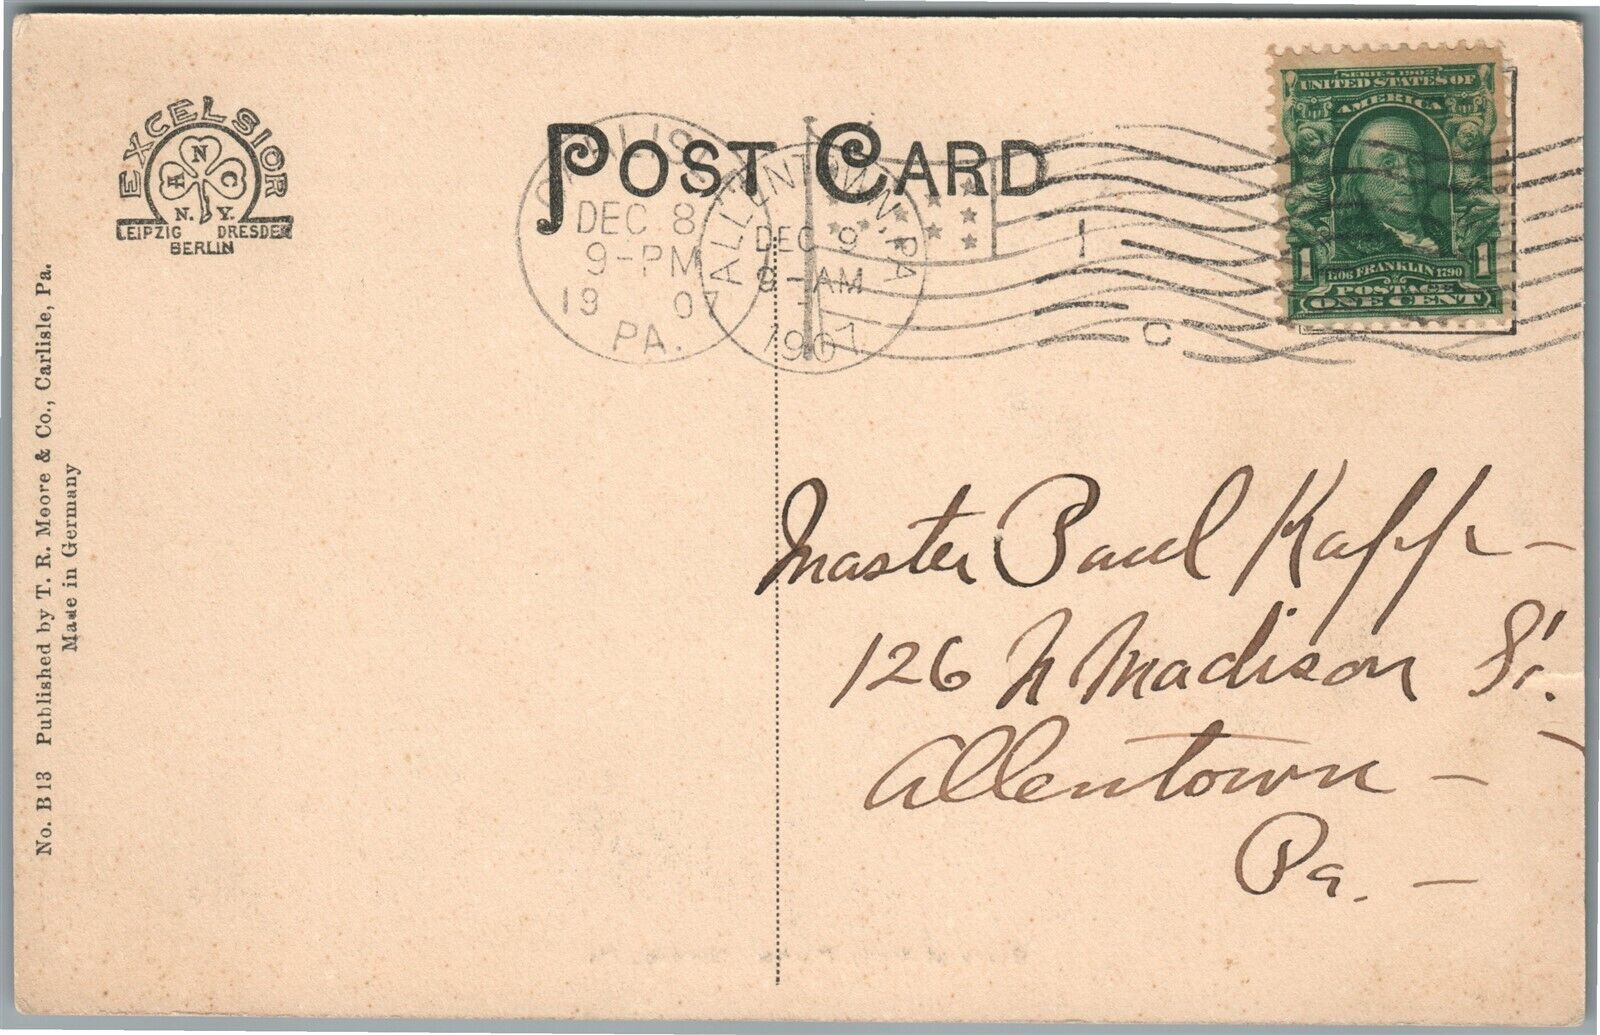 EXCELSIOR
N
A C
N. Y.
LEIPZIG DRESDEN
BERLIN
POST CARD
CARLISLE
DEC 8
9-PM
19 07
PA.
ALLENTOWN, PA
DEC 9
8-AM
1907
1
C
SERIES 1902
UNITED STATES OF
AMERICA
1 1
1706 FRANKLIN 1790
POSTAGE
ONE CENT
Master Paul Kapp -
126 N Madison St.
Allentown -
Pa. -
No. B 13 Published by T. R. Moore & Co., Carlisle, Pa.
Made in Germany